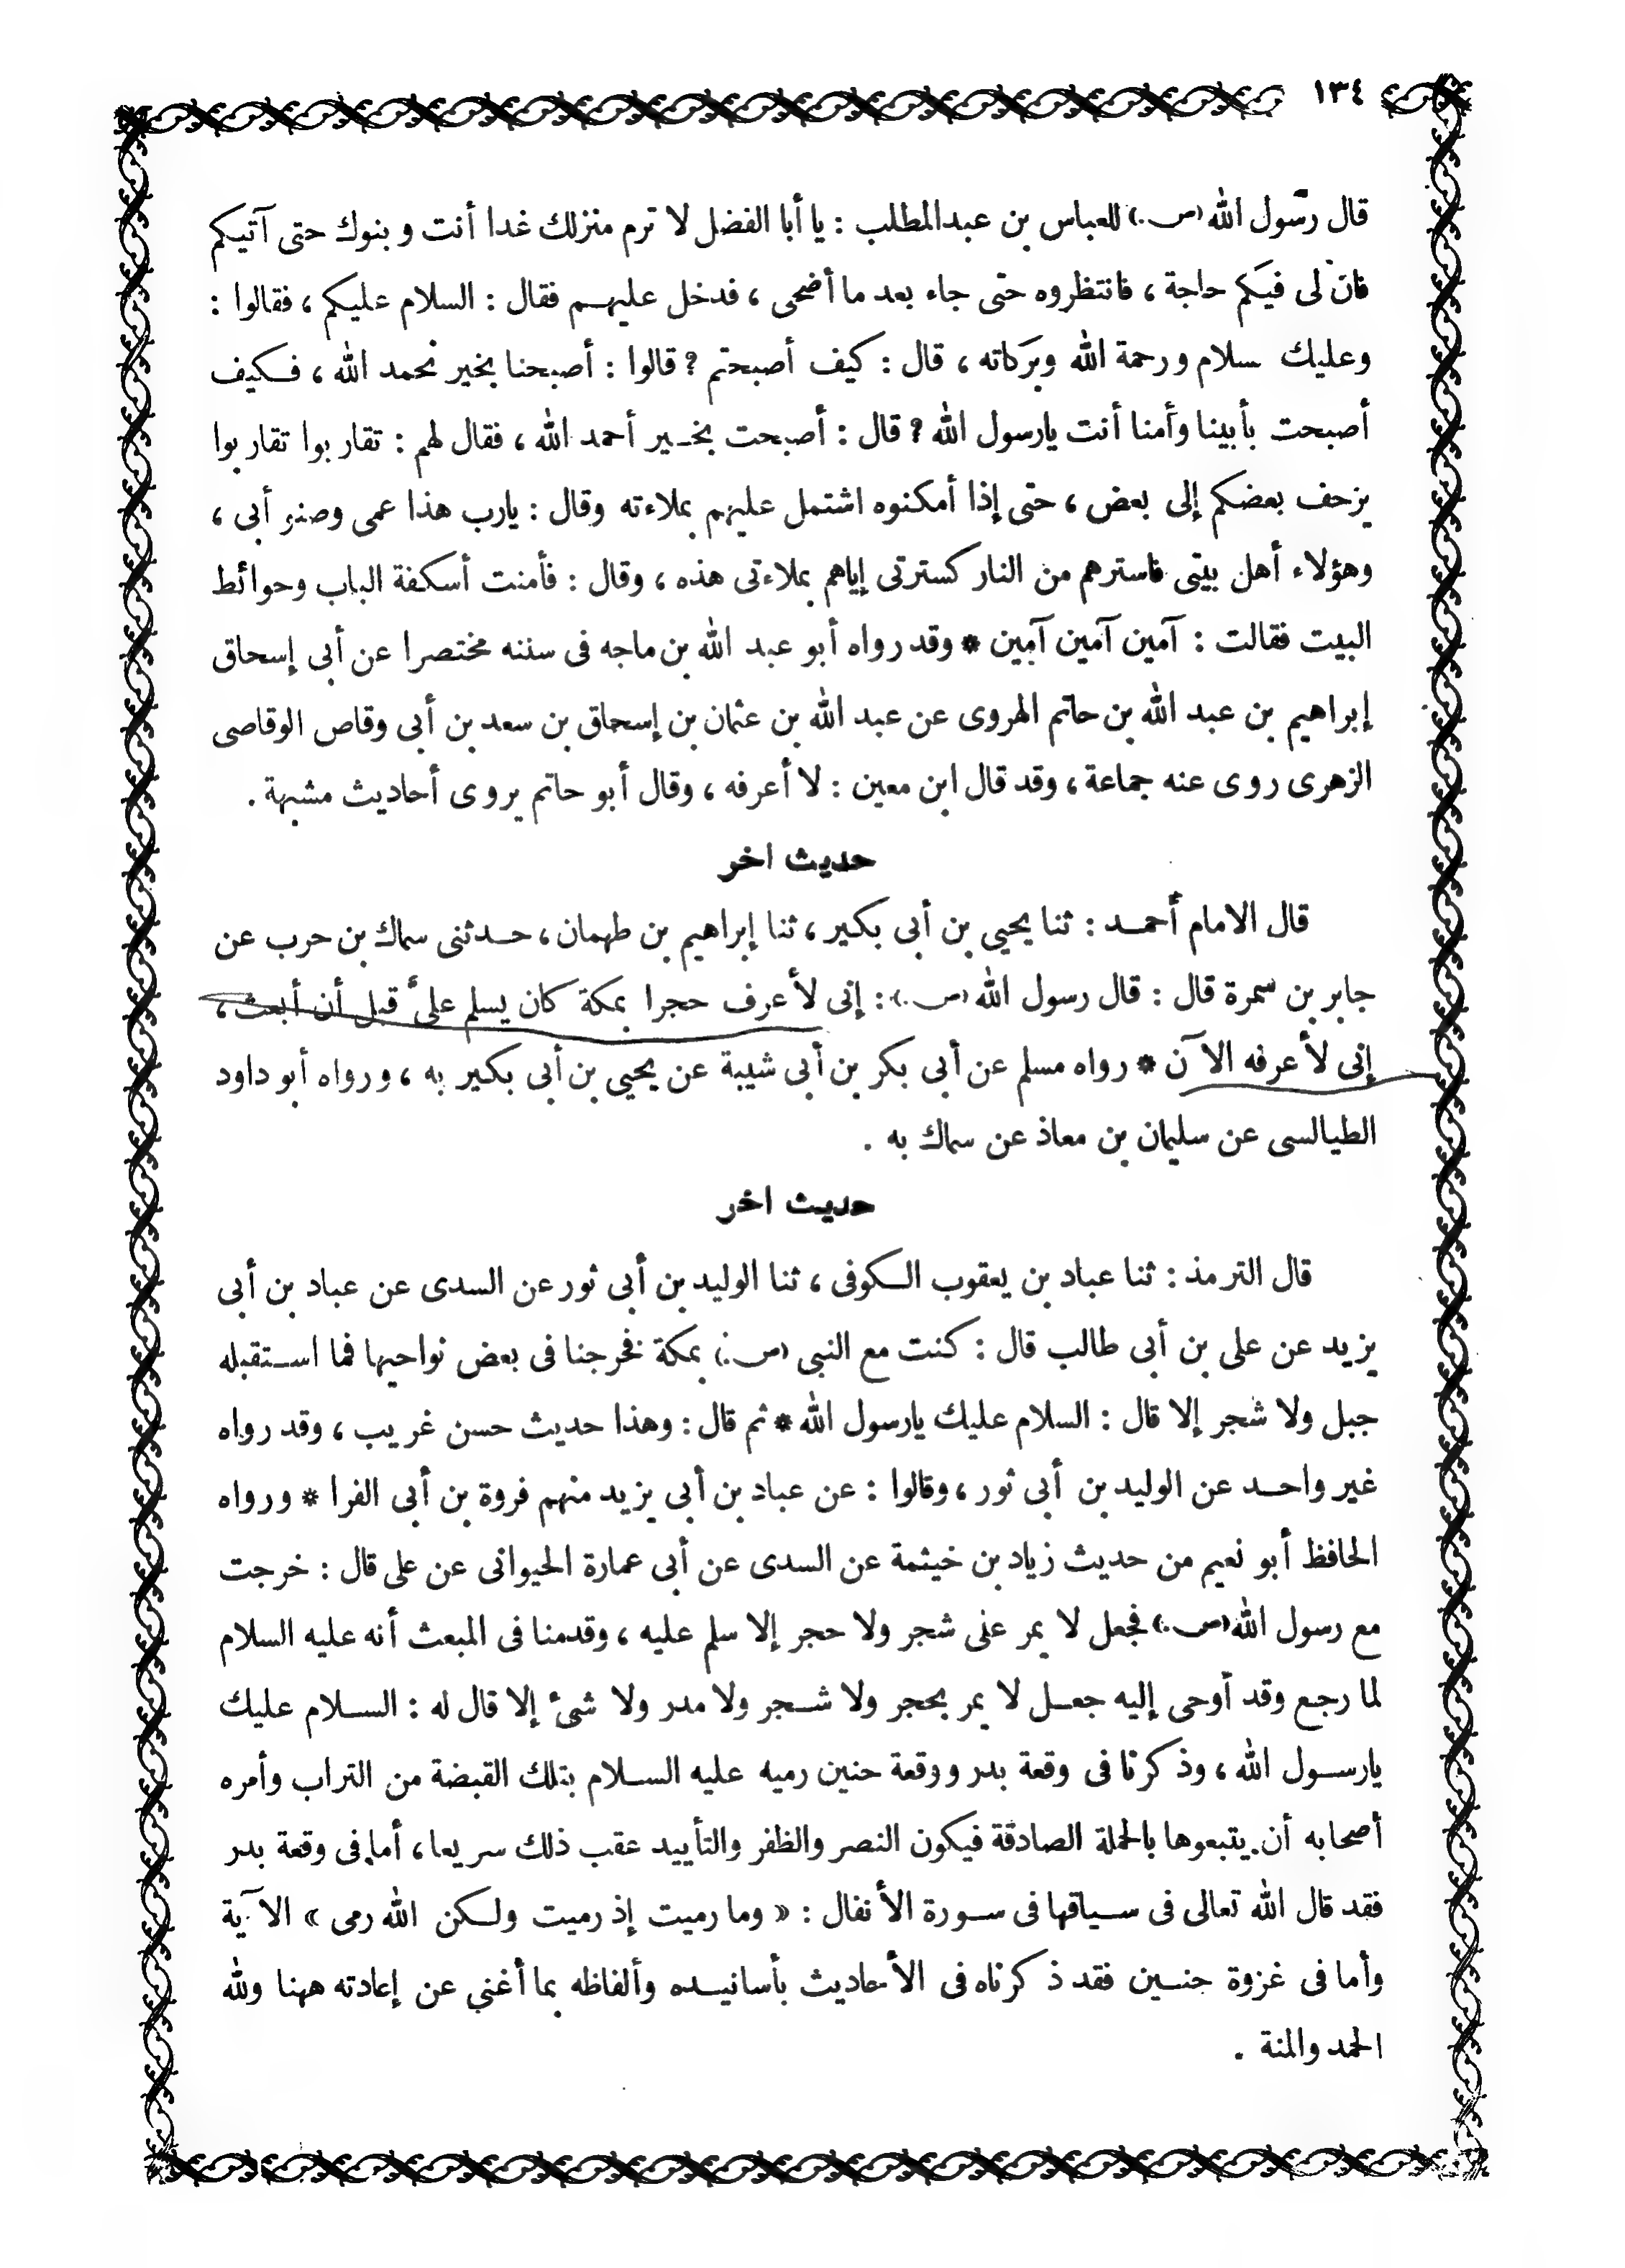 ١٣٤
قال رسول الله (ص.) للعباس بن عبدالمطلب : يا أبا الفضل لا ترم منزلك غدا أنت و بنوك حتى آتيكم
فان لى فيكم حاجة ، فانتظروه حتى جاء بعد ما أضحى ، فدخل عليهم فقال : السلام عليكم ، فقالوا :
وعليك سلام ورحمة الله وبركاته ، قال : كيف أصبحتم ؟ قالوا : أصبحنا بخير نحمد الله ، فكيف
أصبحت بأبينا وأمنا أنت يارسول الله ؟ قال : أصبحت بخير أحمد الله ، فقال لهم : تقاربوا تقاربوا
يزحف بعضكم إلى بعض ، حتى إذا أمكنوه اشتمل عليهم بملاءته وقال : يارب هذا عمى وصنو أبى ،
وهؤلاء أهل بيتى فاسترهم من النار كسترتى إياهم بملاءتى هذه ، وقال : فأمنت أسكفة الباب وحوائط
البيت فقالت : آمين آمين آمين * وقد رواه أبو عبد الله بن ماجه فى سننه مختصرا عن أبى إسحاق
إبراهيم بن عبد الله بن حاتم الهروى عن عبد الله بن عثمان بن إسحاق بن سعد بن أبى وقاص الوقاصى
الزهرى روى عنه جماعة ، وقد قال ابن معين : لا أعرفه ، وقال أبو حاتم يروى أحاديث مشبهة .
حديث اخر
قال الامام أحمد : ثنا يحيى بن أبى بكير ، ثنا إبراهيم بن طهمان ، حدثنى سماك بن حرب عن
جابر بن سمرة قال : قال رسول الله (ص.) : إنى لأعرف حجرا بمكة كان يسلم علىّ قبل أن أبعث ،
إنى لأعرفه الآن * رواه مسلم عن أبى بكر بن أبى شيبة عن يحيى بن أبى بكير به ، ورواه أبو داود
الطيالسى عن سليمان بن معاذ عن سماك به .
حديث اخر
قال الترمذ : ثنا عباد بن يعقوب الكوفى ، ثنا الوليد بن أبى ثور عن السدى عن عباد بن أبى
يزيد عن على بن أبى طالب قال : كنت مع النبى (ص.) بمكة فخرجنا فى بعض نواحيها فما استقبله
جبل ولا شجر إلا قال : السلام عليك يارسول الله * ثم قال : وهذا حديث حسن غريب ، وقد رواه
غير واحد عن الوليد بن أبى ثور ، وقالوا : عن عباد بن أبى يزيد منهم فروة بن أبى الفرا * ورواه
الحافظ أبو نعيم من حديث زياد بن خيثمة عن السدى عن أبى عمارة الحيوانى عن على قال : خرجت
مع رسول الله (ص.) فجعل لا يمر على شجر ولا حجر إلا سلم عليه ، وقدمنا فى المبعث أنه عليه السلام
لما رجع وقد أوحى إليه جعل لا يمر بحجر ولا شجر ولا مدر ولا شئ إلا قال له : السلام عليك
يارسول الله ، وذكرنا فى وقعة بدر ووقعة حنين رميه عليه السلام بتلك القبضة من التراب وأمره
أصحابه أن يتبعوها بالحملة الصادقة فيكون النصر والظفر والتأييد عقب ذلك سريعا ، أما فى وقعة بدر
فقد قال الله تعالى فى سياقها فى سورة الأنفال : « وما رميت إذ رميت ولكن الله رمى » الآية
وأما فى غزوة حنين فقد ذكرناه فى الأحاديث بأسانيده وألفاظه بما أغني عن إعادته ههنا ولله
الحمد والمنة .